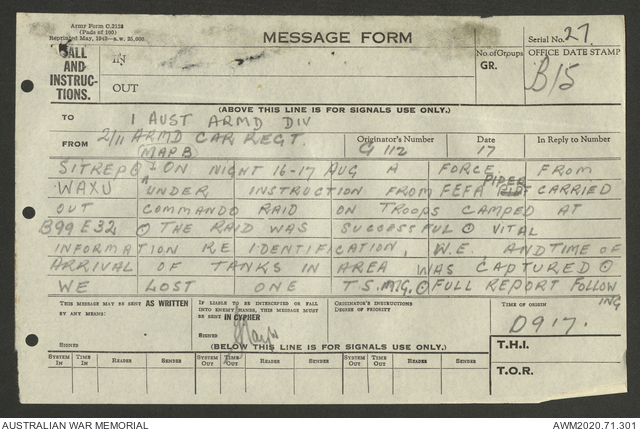 Army Form C.2128
(Pads of 100)
Reprinted May, 1942
MESSAGE FORM
Serial No. 27
CALL
AND
INSTRUC-
TIONS.
IN
OUT
No. of Groups
GR.
OFFICE DATE STAMP
B/5
(ABOVE THIS LINE IS FOR SIGNALS USE ONLY.)
TO 1 AUST ARMD DIV
FROM 2/11 ARMD CAR REGT.
(MAP B)
Originator's Number
G 112
Date
17
In Reply to Number
SITREP ⊙ ON NIGHT 16-17 AUG A FORCE FROM
WAXU UNDER INSTRUCTION FROM FEFA CARRIED
OUT COMMANDO RAID ON TROOPS CAMPED AT
B99E32 ⊙ THE RAID WAS SUCCESSFUL ⊙ VITAL
INFORMATION RE IDENTIFICATION, W.E. AND TIME OF
ARRIVAL OF TANKS IN AREA WAS CAPTURED ⊙
WE LOST ONE T.S.M.G. ⊙ FULL REPORT FOLLOW
ING
THIS MESSAGE MAY BE SENT AS WRITTEN
BY ANY MEANS:
SIGNED
IF LIABLE TO BE INTERCEPTED OR FALL
INTO ENEMY HANDS, THIS MESSAGE MUST
BE SENT IN CYPHER
SIGNED
ORIGINATOR'S INSTRUCTIONS
DEGREE OF PRIORITY
TIME OF ORIGIN
0917.
(BELOW THIS LINE IS FOR SIGNALS USE ONLY.)
T.H.I.
T.O.R.
SYSTEM IN
TIME IN
READER
SENDER
SYSTEM OUT
TIME OUT
READER
SENDER
SYSTEM OUT
TIME OUT
READER
SENDER
AUSTRALIAN WAR MEMORIAL
AWM2020.71.301